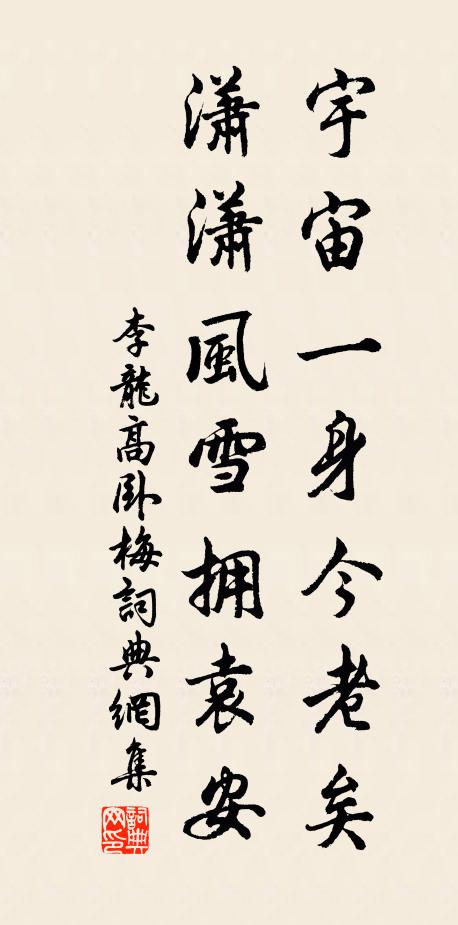 宇宙一身今老矣
瀟瀟風雪拥袁安
李龍高卧梅詞典網集
詞典網印